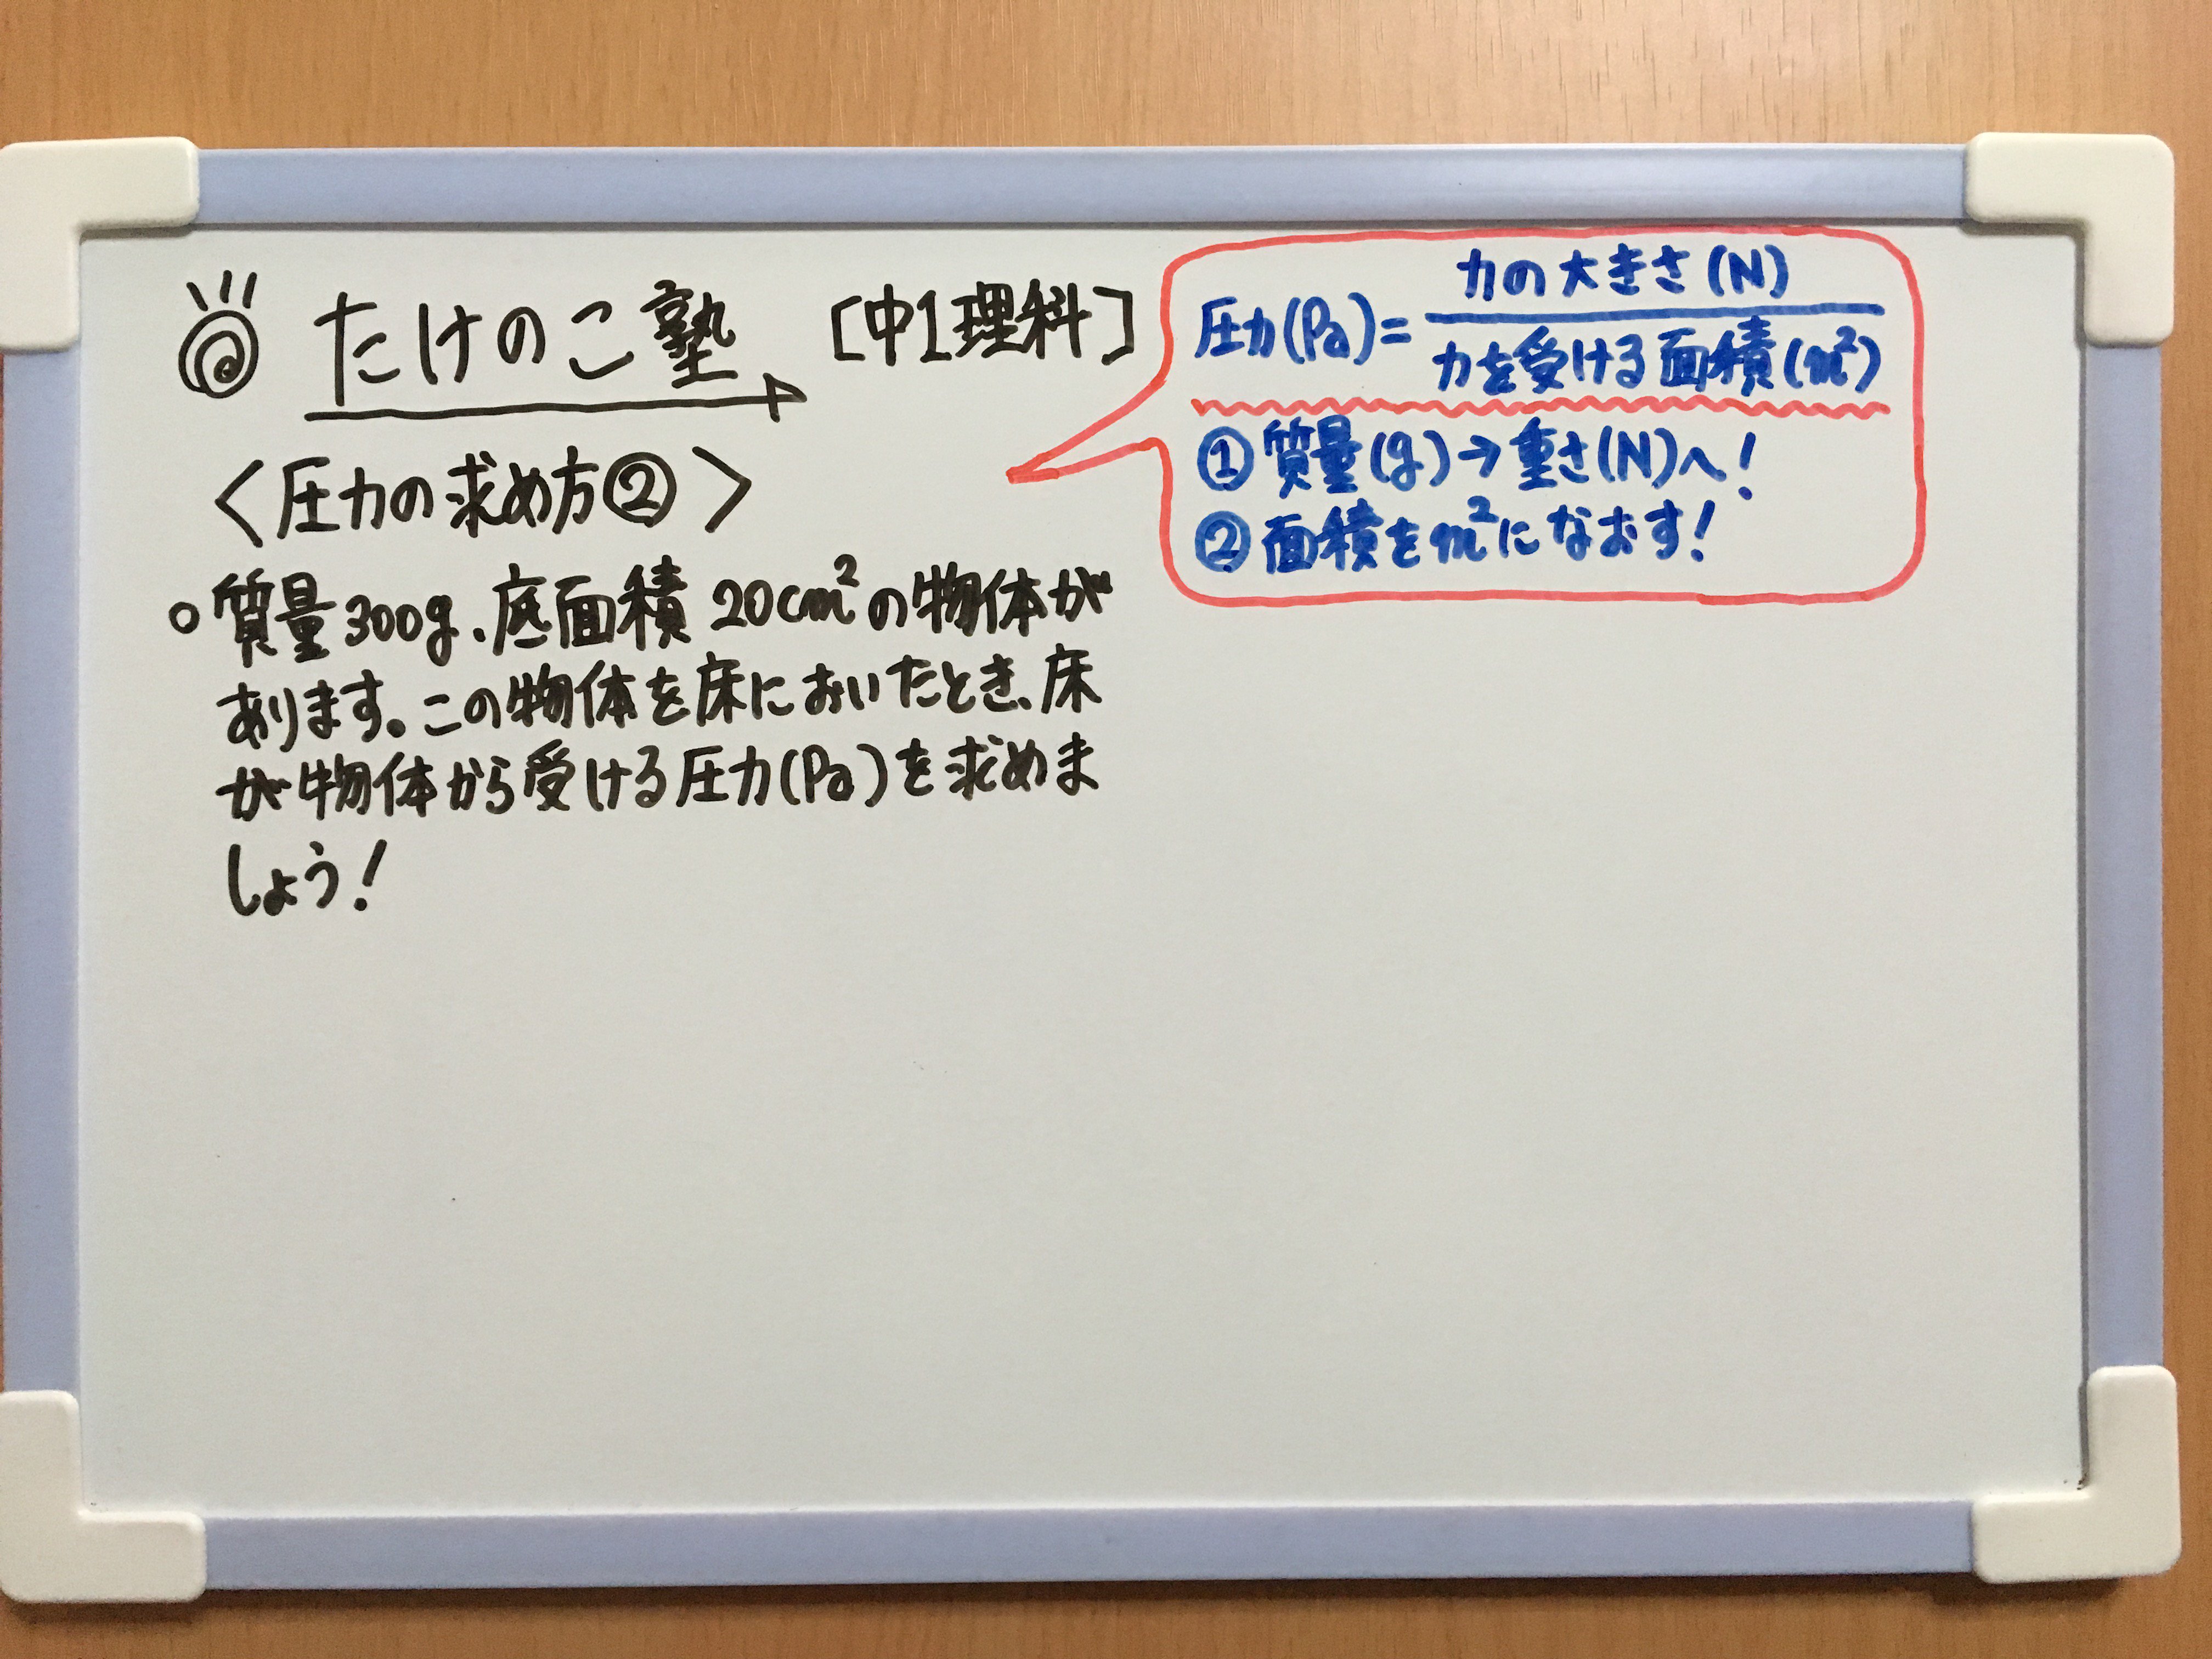 たけのこ塾 [中1理科]
<圧力の求め方②>
○質量300g、底面積20cm²の物体が
あります。この物体を床においたとき、床
が物体から受ける圧力(Pa)を求めま
しょう!
圧力(Pa)=力の大きさ(N)/力を受ける面積(m²)
①質量(g)→重さ(N)へ!
②面積をm²になおす!